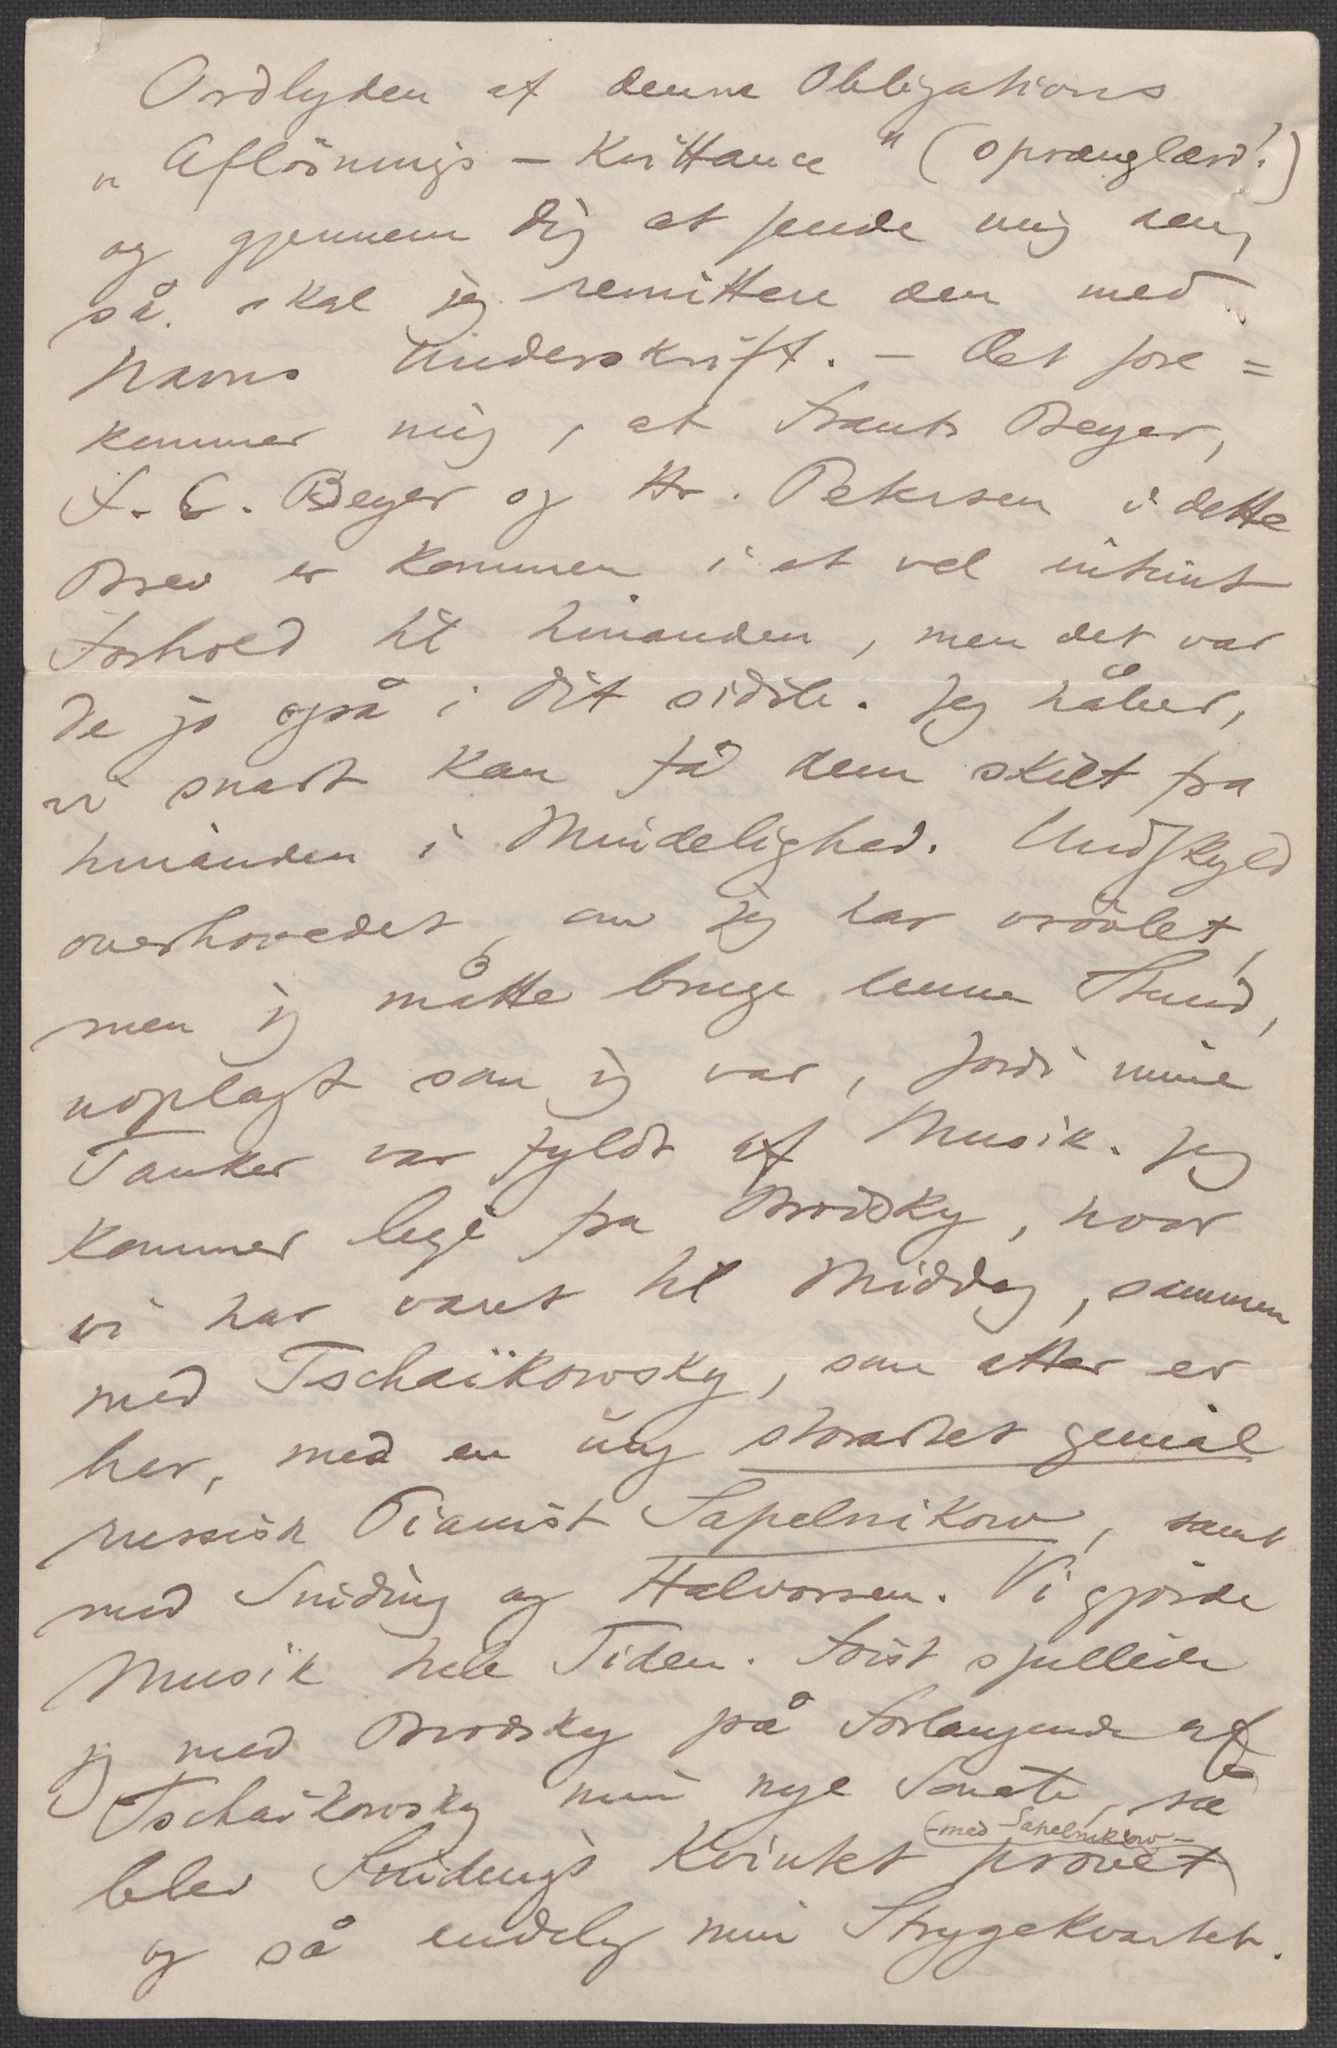 Ordlyden af denne Obligations
„Aflösnings – Kvittance" (opvænglærd!)
og gjennem Dig at sende mig den,
så skal jeg remittere den med
Navns Underskrift. – Det fore=
kommer mig, at Frants Beyer,
F. C. Beyer og Hr. Petersen i dette
Brev er kommen i et vel intimt
Forhold til hinanden, men det var
de jo også i Dit sidste. Jeg håber,
vi snart kan få dem skilt fra
hinanden i Mindelighed. Undskyld
overhovedet, om jeg har vrövlet,
men jeg måtte bruge denne Stund,
uoplagt som jeg var, fordi mine
Tanker var fyldt af Musik. Jeg
kommer lige fra Brodsky, hvor
vi har været til Middag, sammen
med Tschaïkowsky, som atter er
her, med en ung storartet genial
russisk Pianist Sapelnikow, samt
med Sinding og Halvorsen. Vi gjörde
Musik hele Tiden. Först spillede
jeg med Brodsky på Forlangende af
Tschaïkowsky min nye Sonate, så
blev Sindings Kvintet (–med Sapelnikow–) prövet
og så endelig min Strygekvartet.